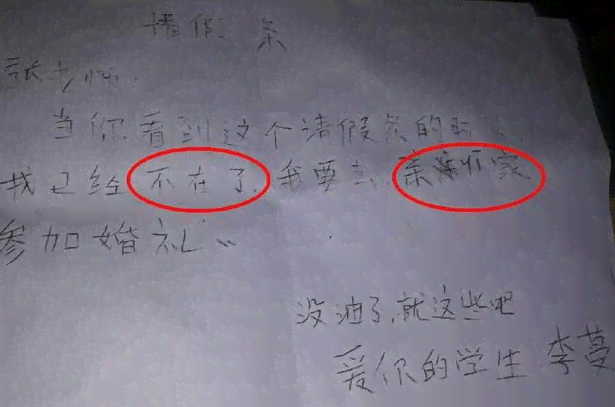 请假条
张老师:
当你看到这个请假条的时候,
我已经不在了,我要去亲戚家
参加婚礼。
没油了,就这些吧
爱你的学生 李蔓